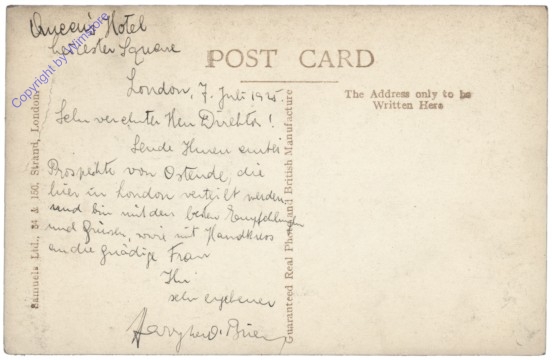 Queen's Hotel
Leicester Square
POST CARD
London, 7. Juli 1925.
The Address only to be
Written Here
Sehr verehrter Herr Direktor!
Sende Ihnen anbei
Prospekte von Ostende, die
hier in London verteilt werden
und bin mit den besten Empfehlungen
und Grüssen, sowie mit Handkuss
an die gnädige Frau
Ihr
sehr ergebener
Samuels Ltd., 84 & 150, Strand, London
Guaranteed Real Photo and British Manufacture
Copyright by